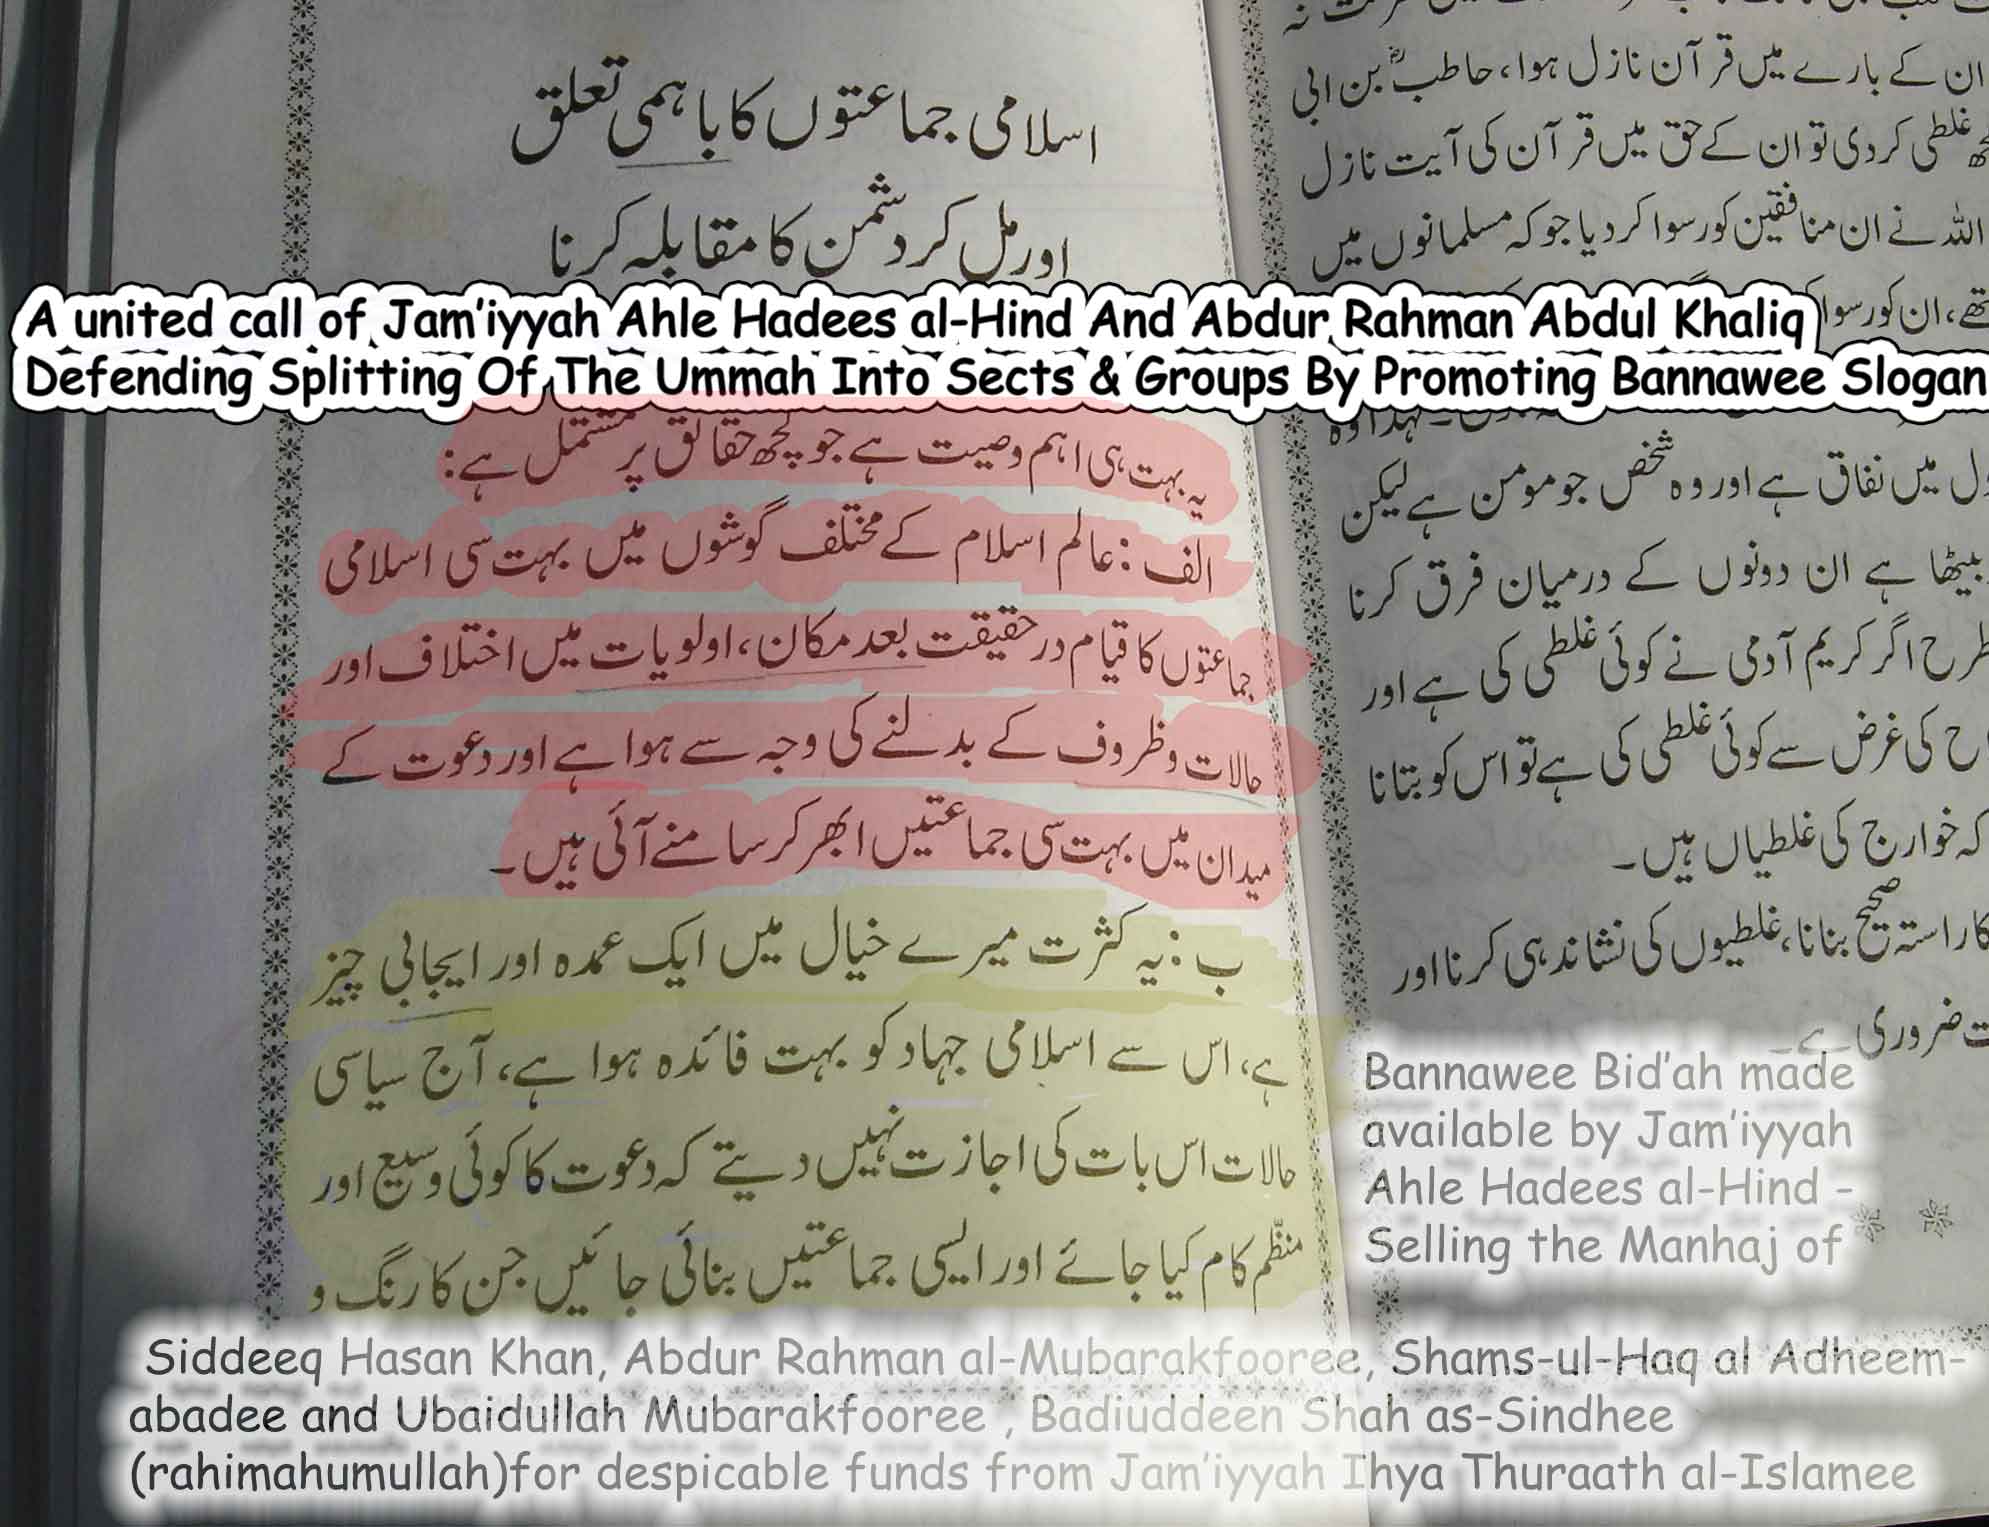 ان کے بارے میں قرآن نازل ہوا، حاطبؓ بن ابی
غلطی کردی تو ان کے حق میں قرآن کی آیت نازل
اللہ نے ان منافقین کو رسوا کردیا جو کہ مسلمانوں میں
تھے، ان کو رسوا
میں نفاق ہے اور وہ شخص جو مومن ہے لیکن
بیٹھا ہے ان دونوں کے درمیان فرق کرنا
اگر کریم آدمی نے کوئی غلطی کی ہے اور
کی غرض سے کوئی غلطی کی ہے تو اس کو بتانا
کہ خوارج کی غلطیاں ہیں۔
راستہ صحیح بنانا، غلطیوں کی نشاندہی کرنا اور
ضروری ہے۔
اسلامی جماعتوں کا باہمی تعلق
اور مل کر دشمن کا مقابلہ کرنا
A united call of Jam'iyyah Ahle Hadees al-Hind And Abdur Rahman Abdul Khaliq
Defending Splitting Of The Ummah Into Sects & Groups By Promoting Bannawee Slogan
یہ بہت ہی اہم وصیت ہے جو کچھ حقائق پر مشتمل ہے:
الف: عالم اسلام کے مختلف گوشوں میں بہت سی اسلامی
جماعتوں کا قیام در حقیقت بعد مکان، اولویات میں اختلاف اور
حالات وظروف کے بدلنے کی وجہ سے ہوا ہے اور دعوت کے
میدان میں بہت سی جماعتیں ابھر کر سامنے آئی ہیں۔
ب: یہ کثرت میرے خیال میں ایک عمدہ اور ایجابی چیز
ہے، اس سے اسلامی جہاد کو بہت فائدہ ہوا ہے، آج سیاسی
حالات اس بات کی اجازت نہیں دیتے کہ دعوت کا کوئی وسیع اور
منظّم کام کیا جائے اور ایسی جماعتیں بنائی جائیں جن کا رنگ و
Bannawee Bid'ah made
available by Jam'iyyah
Ahle Hadees al-Hind -
Selling the Manhaj of
Siddeeq Hasan Khan, Abdur Rahman al-Mubarakfooree, Shams-ul-Haq al Adheem-
abadee and Ubaidullah Mubarakfooree , Badiuddeen Shah as-Sindhee
(rahimahumullah)for despicable funds from Jam'iyyah Ihya Thuraath al-Islamee